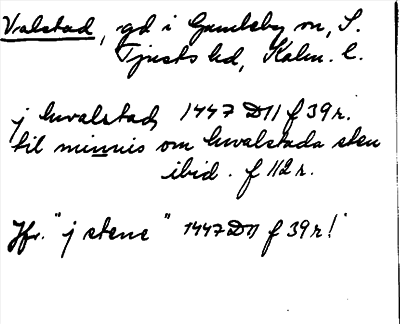 Valstad, gd i Gamleby sn, S.
Tjusts hd, Kalm. l.
j hwalstadh 1447 D11 f 39 r.
til minnis om hwalstada sten
ibid. f 112 r.
Jfr. "j stene" 1447 D11 f 39 r!